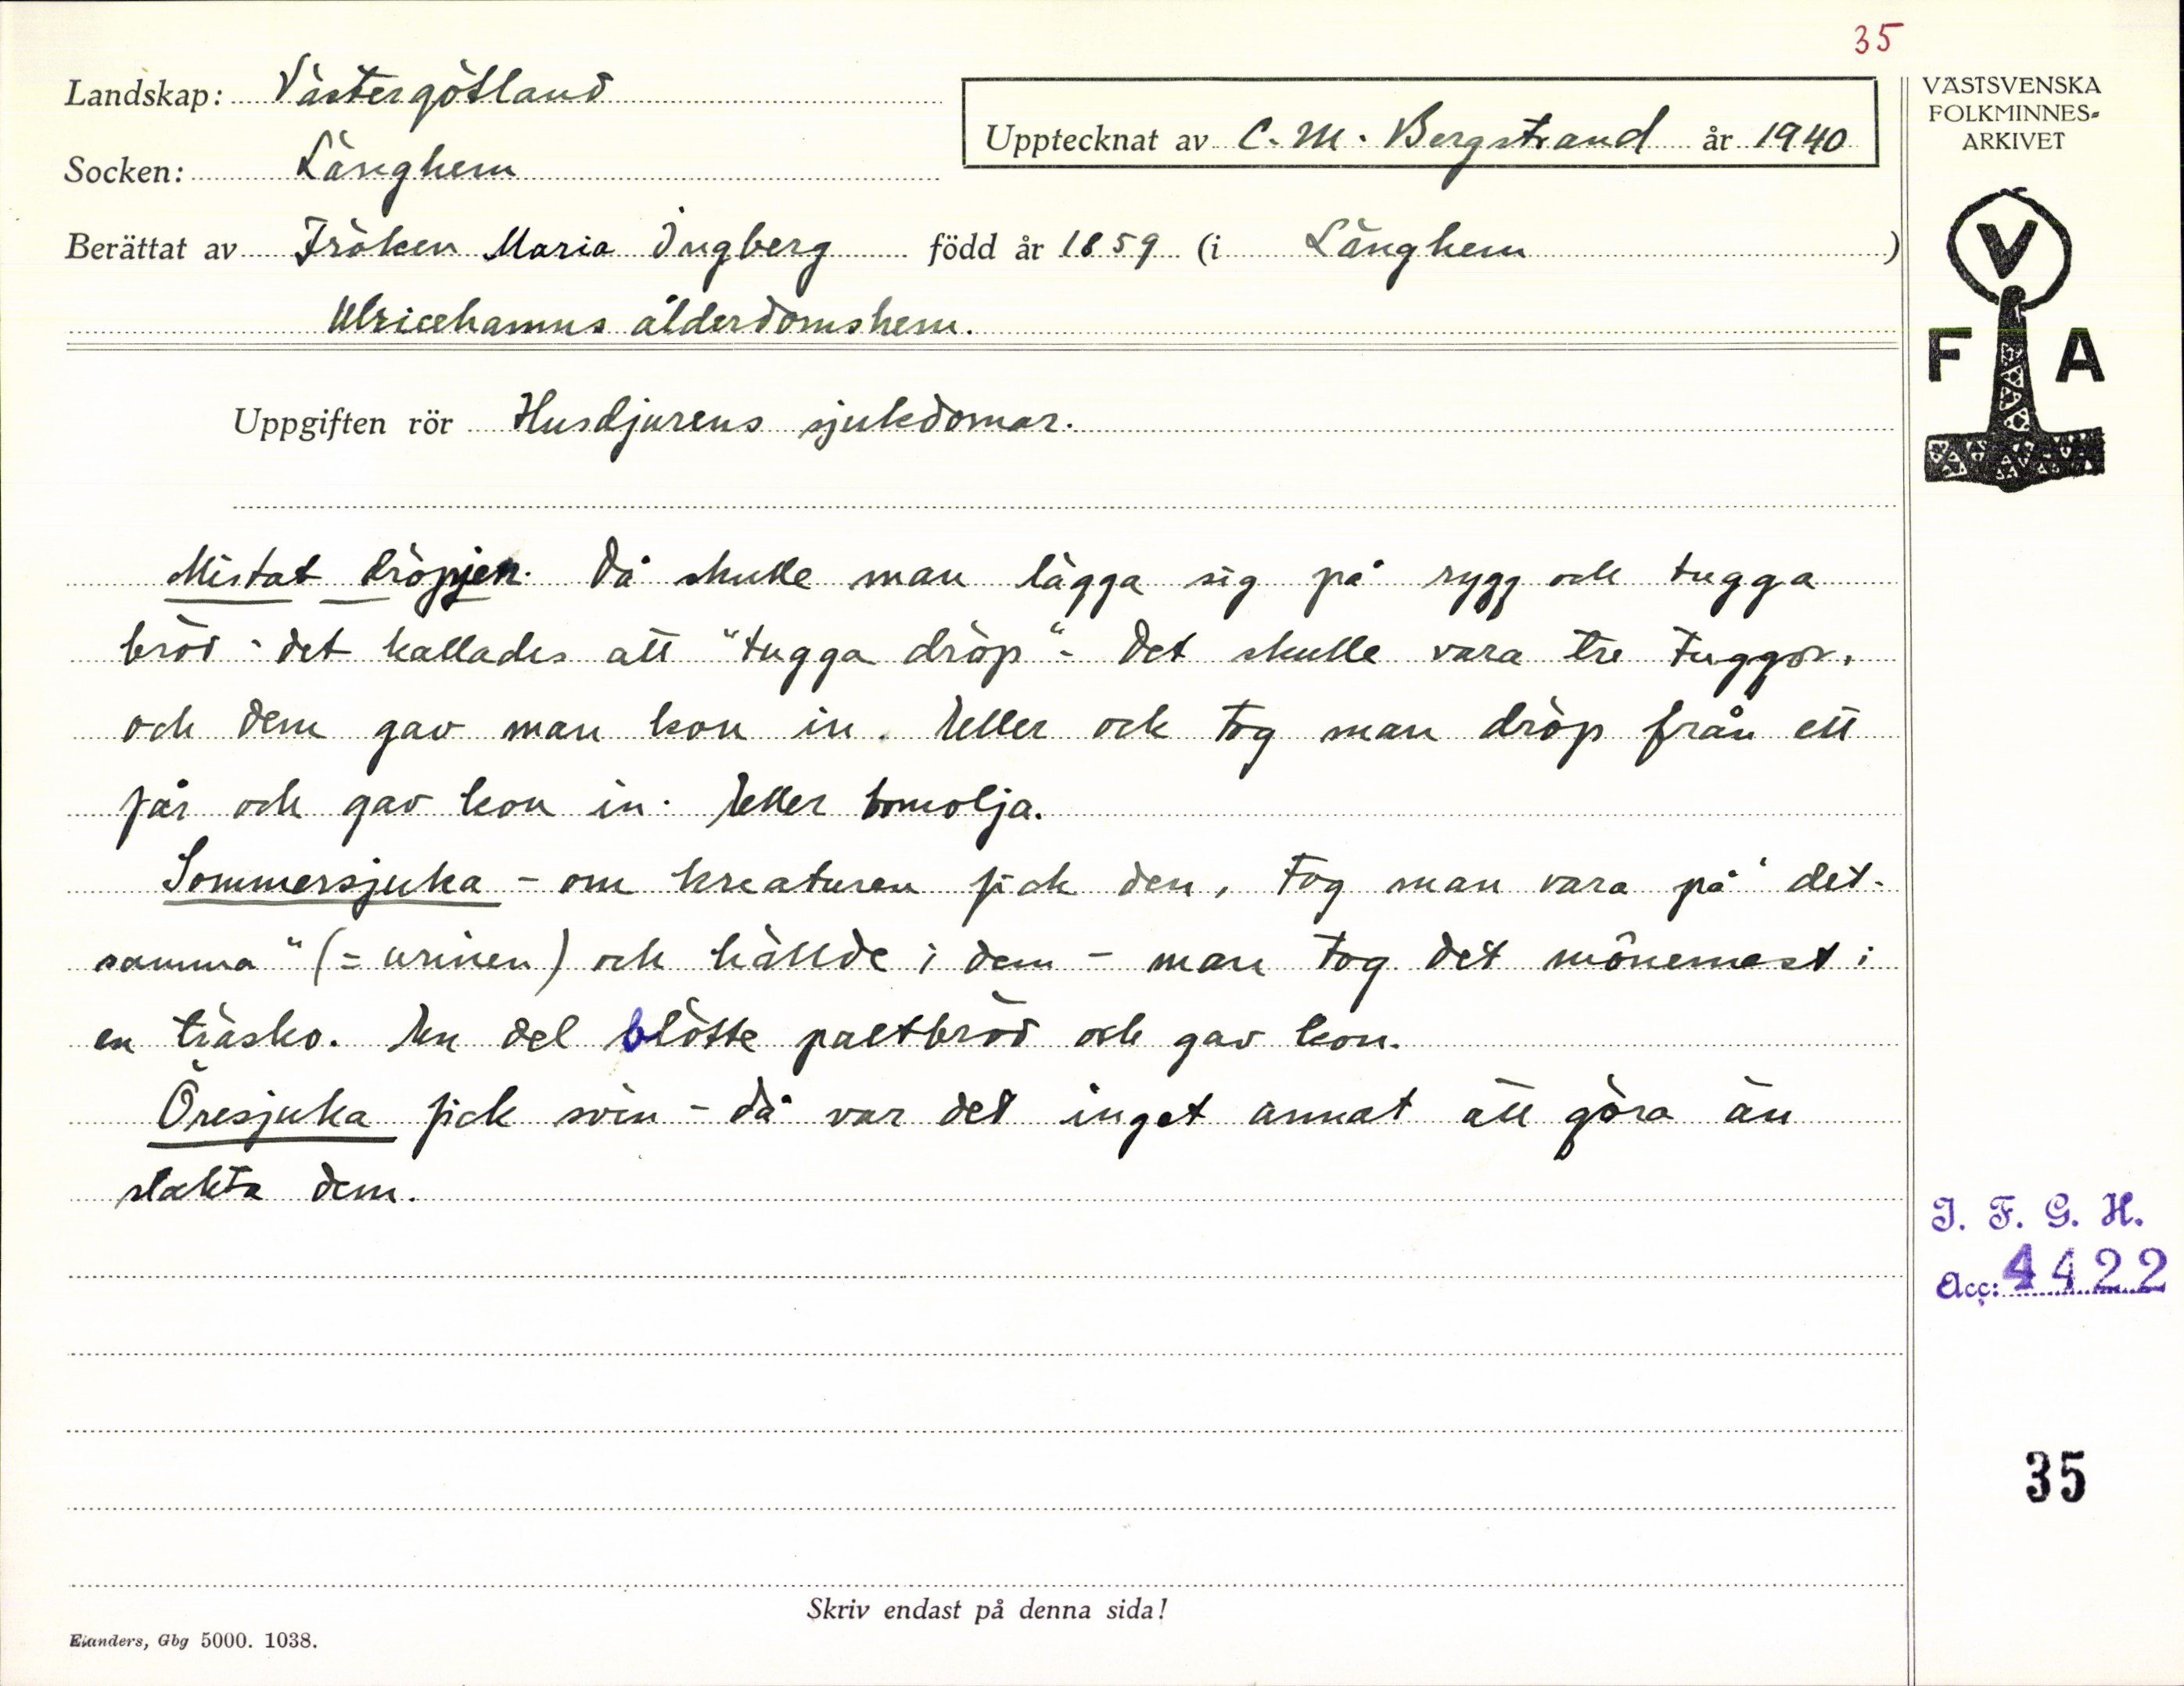 35
Landskap: Västergötland
Socken: Länghem
Upptecknat av C. M. Bergstrand år 1940
VÄSTSVENSKA
FOLKMINNES-
ARKIVET
Berättat av Fröken Maria Ingberg född år 1859 (i Länghem)
Ulricehamns ålderdomshem.
V
F A
Uppgiften rör Husdjurens sjukdomar.
Mistat dröpjen. Då skulle man lägga sig på rygg och tugga
bröd - det kallades att "tugga dröp" - Det skulle vara tre tuggor,
och dem gav man kon in. Eller ock tog man dröp från ett
får och gav kon in. Eller bomolja.
Sommersjuka - om kreaturen fick den, tog man vara på "det-
samma" (= urinen) och hällde i dem - man tog det mönemest i
en träsko. En del blötte paltbröd och gav kon.
Öresjuka fick svin - då var det inget annat att göra än
slakta dem.
I. F. G. H.
Acc: 4422
35
Skriv endast på denna sida!
Elanders, Gbg 5000. 1038.